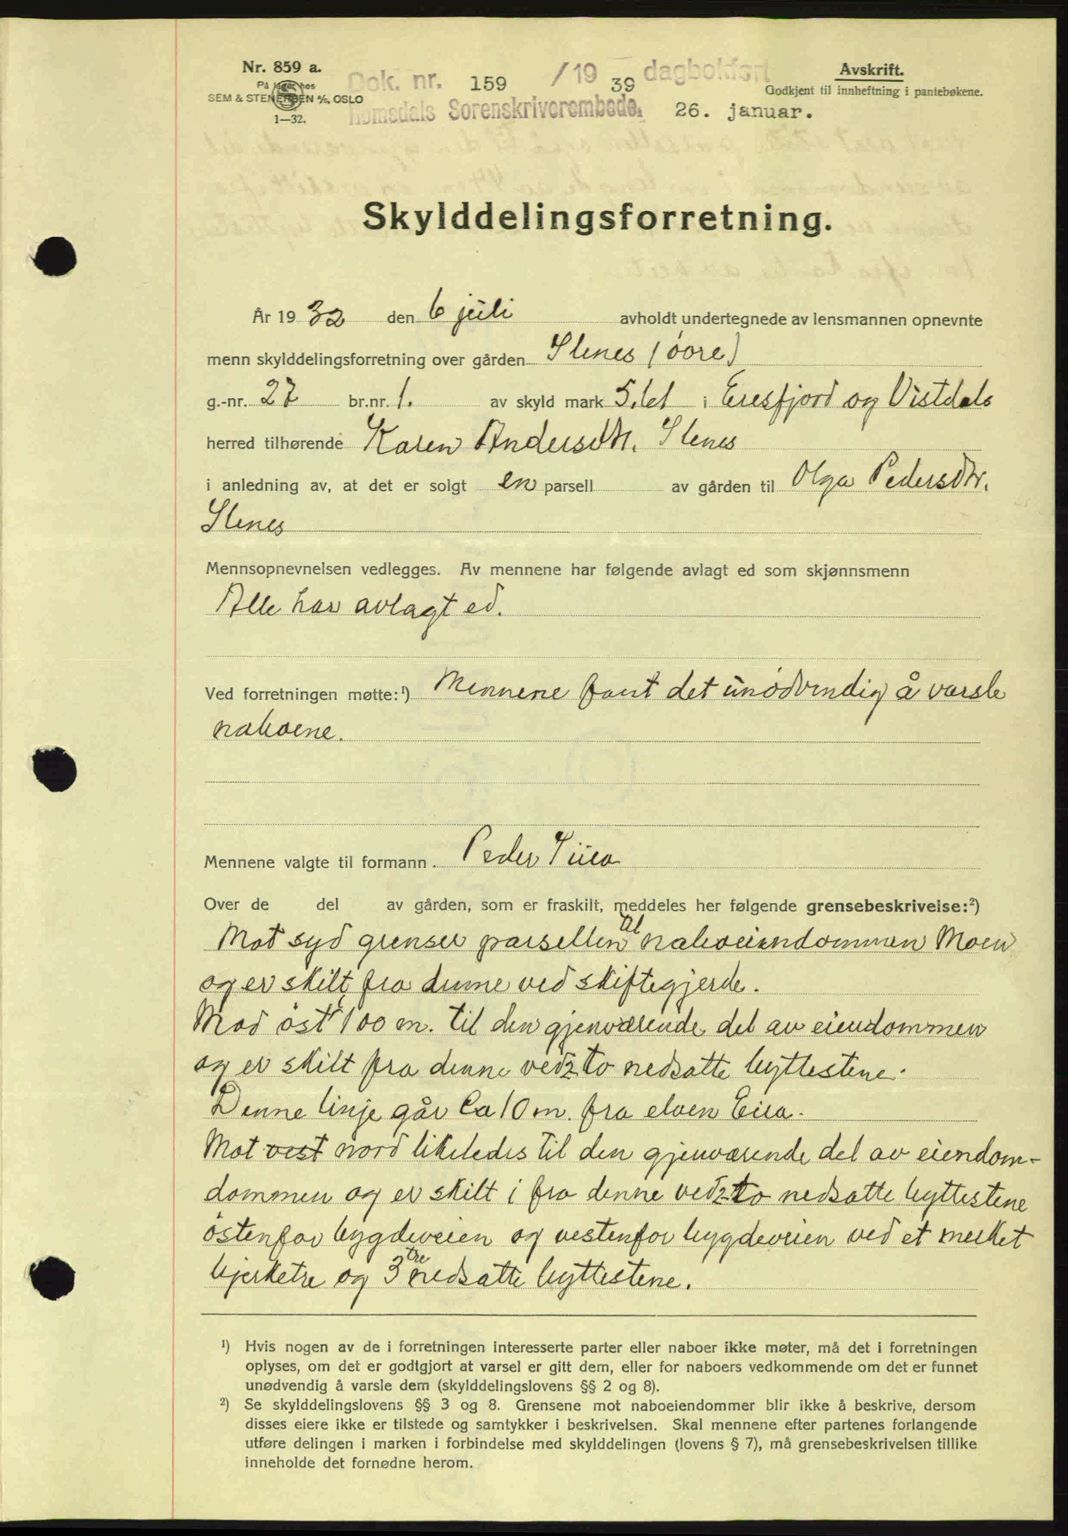 Nr. 859 a.
På lager hos
SEM & STENERSEN A/S, OSLO
1—32.
Dok. nr. 159 /19 39 dagbokført
Romsdals Sorenskriverembede. 26. januar.
Avskrift.
Godkjent til innheftning i pantebøkene.
Skylddelingsforretning.
År 1932 den 6 juli avholdt undertegnede av lensmannen opnevnte
menn skylddelingsforretning over gården Slenes (øvre)
g.-nr. 27 br.nr. 1. av skyld mark 5,61 i Eresfjord og Vistdals
herred tilhørende Karen Andersdtr. Slenes
i anledning av, at det er solgt en parsell av gården til Olga Pedersdtr.
Slenes
Mennsopnevnelsen vedlegges. Av mennene har følgende avlagt ed som skjønnsmenn
Alle har avlagt ed.
Ved forretningen møtte:¹) Mennene fant det unødvendig å varsle
naboene.
Mennene valgte til formann. Peder Siira
Over de del av gården, som er fraskilt, meddeles her følgende grensebeskrivelse:²)
Mot syd grenser parsellen til naboeiendommen Moen
og er skilt fra denne ved skiftegjerde.
Mod øst 100 m. til den gjenværende del av eiendommen
og er skilt fra denne ved 2 to nedsatte byttestene.
Denne linje går Ca 10 m. fra elven Eira.
Mot vest nord likeledes til den gjenværende del av eiendom-
dommen og er skilt i fra denne ved 2 to nedsatte byttestene
østenfor bygdeveien og vestenfor bygdeveien ved et merket
bjerketre og 3 tre nedsatte byttestene.
¹) Hvis nogen av de i forretningen interesserte parter eller naboer ikke møter, må det i forretningen
oplyses, om det er godtgjort at varsel er gitt dem, eller for naboers vedkommende om det er funnet
unødvendig å varsle dem (skylddelingslovens §§ 2 og 8).
²) Se skylddelingslovens §§ 3 og 8. Grensene mot naboeiendommer blir ikke å beskrive, dersom
disses eiere ikke er tilstede og samtykker i beskrivelsen. Skal mennene efter partenes forlangende
utføre delingen i marken i forbindelse med skylddelingen (lovens § 7), må grensebeskrivelsen tillike
inneholde det fornødne herom.